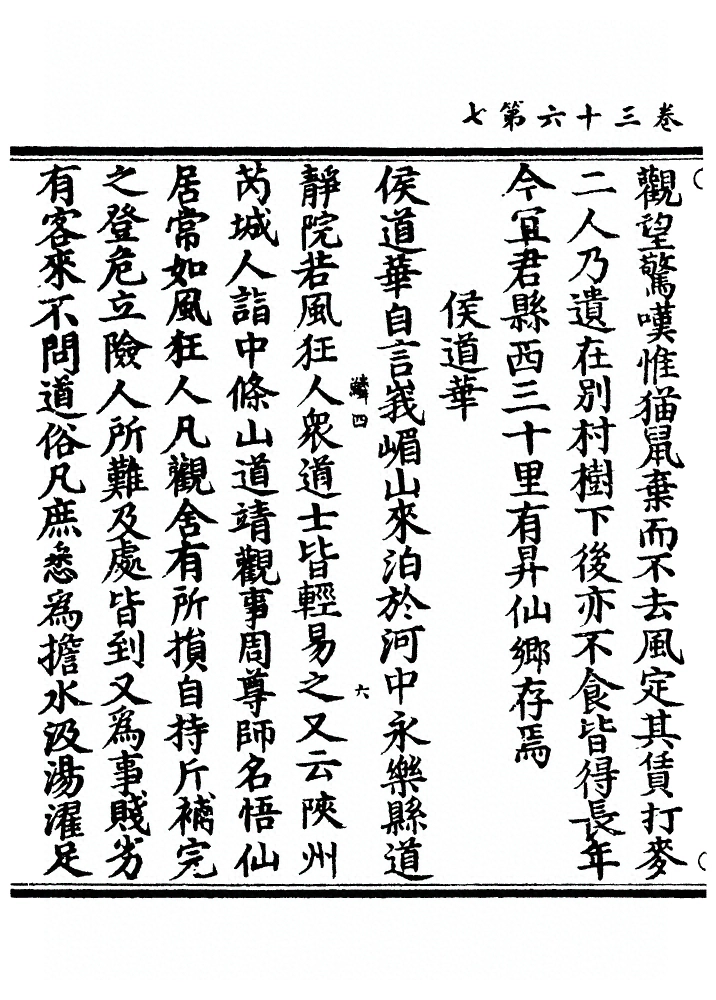 卷三十六第七
觀望驚嘆惟猫鼠棄而不去風定其賃打麥
二人乃遺在別村樹下後亦不食皆得長年
今冝君縣西三十里有昇仙鄉存焉
侯道華
侯道華自言峩嵋山來泊於河中永樂縣道
鱗四
六
靜院若風狂人眾道士皆輕易之又云陝州
芮城人詣中條山道靖觀事周尊師名悟仙
居常如風狂人凡觀舍有所損自持斤補完
之登危立險人所難及處皆到又爲事賤劣
有客來不問道俗凡庶悉爲擔水汲湯濯足